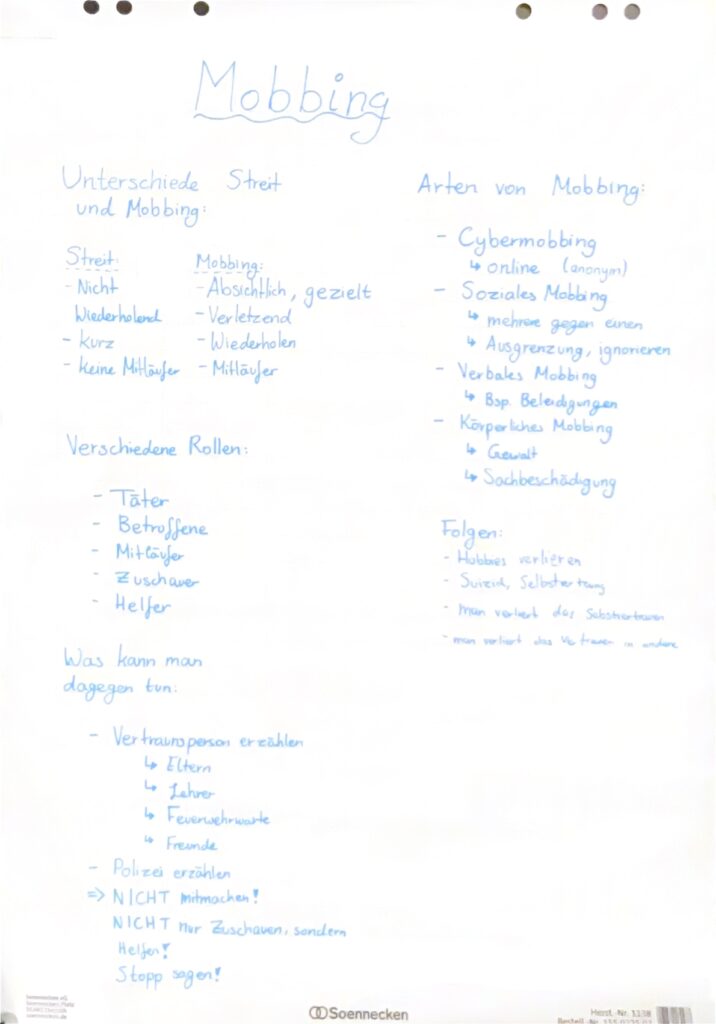 Mobbing
Unterschiede Streit
und Mobbing:
Streit:
- Nicht
Wiederholend
- kurz
- keine Mitläufer
Mobbing:
- Absichtlich, gezielt
- Verletzend
- Wiederholen
- Mitläufer
Verschiedene Rollen:
- Täter
- Betroffene
- Mitläufer
- Zuschauer
- Helfer
Was kann man
dagegen tun:
- Vertraunsperson erzählen
↳ Eltern
↳ Lehrer
↳ Feuerwehrwarte
↳ Freunde
- Polizei erzählen
=> NICHT mitmachen!
NICHT nur Zuschauen, sondern
Helfen!
Stopp sagen!
Arten von Mobbing:
- Cybermobbing
↳ online (anonym)
- Soziales Mobbing
↳ mehrere gegen einen
↳ Ausgrenzung, ignorieren
- Verbales Mobbing
↳ Bsp. Beleidigungen
- Körperliches Mobbing
↳ Gewalt
↳ Sachbeschädigung
Folgen:
- Hobbies verlieren
- Suizid,
- man verliert das
- man verliert das Vertrauen in andere
Soennecken eG
Soennecken-Platz
soennecken.de
Soennecken
Herst.-Nr. 1138
Bestell-Nr.